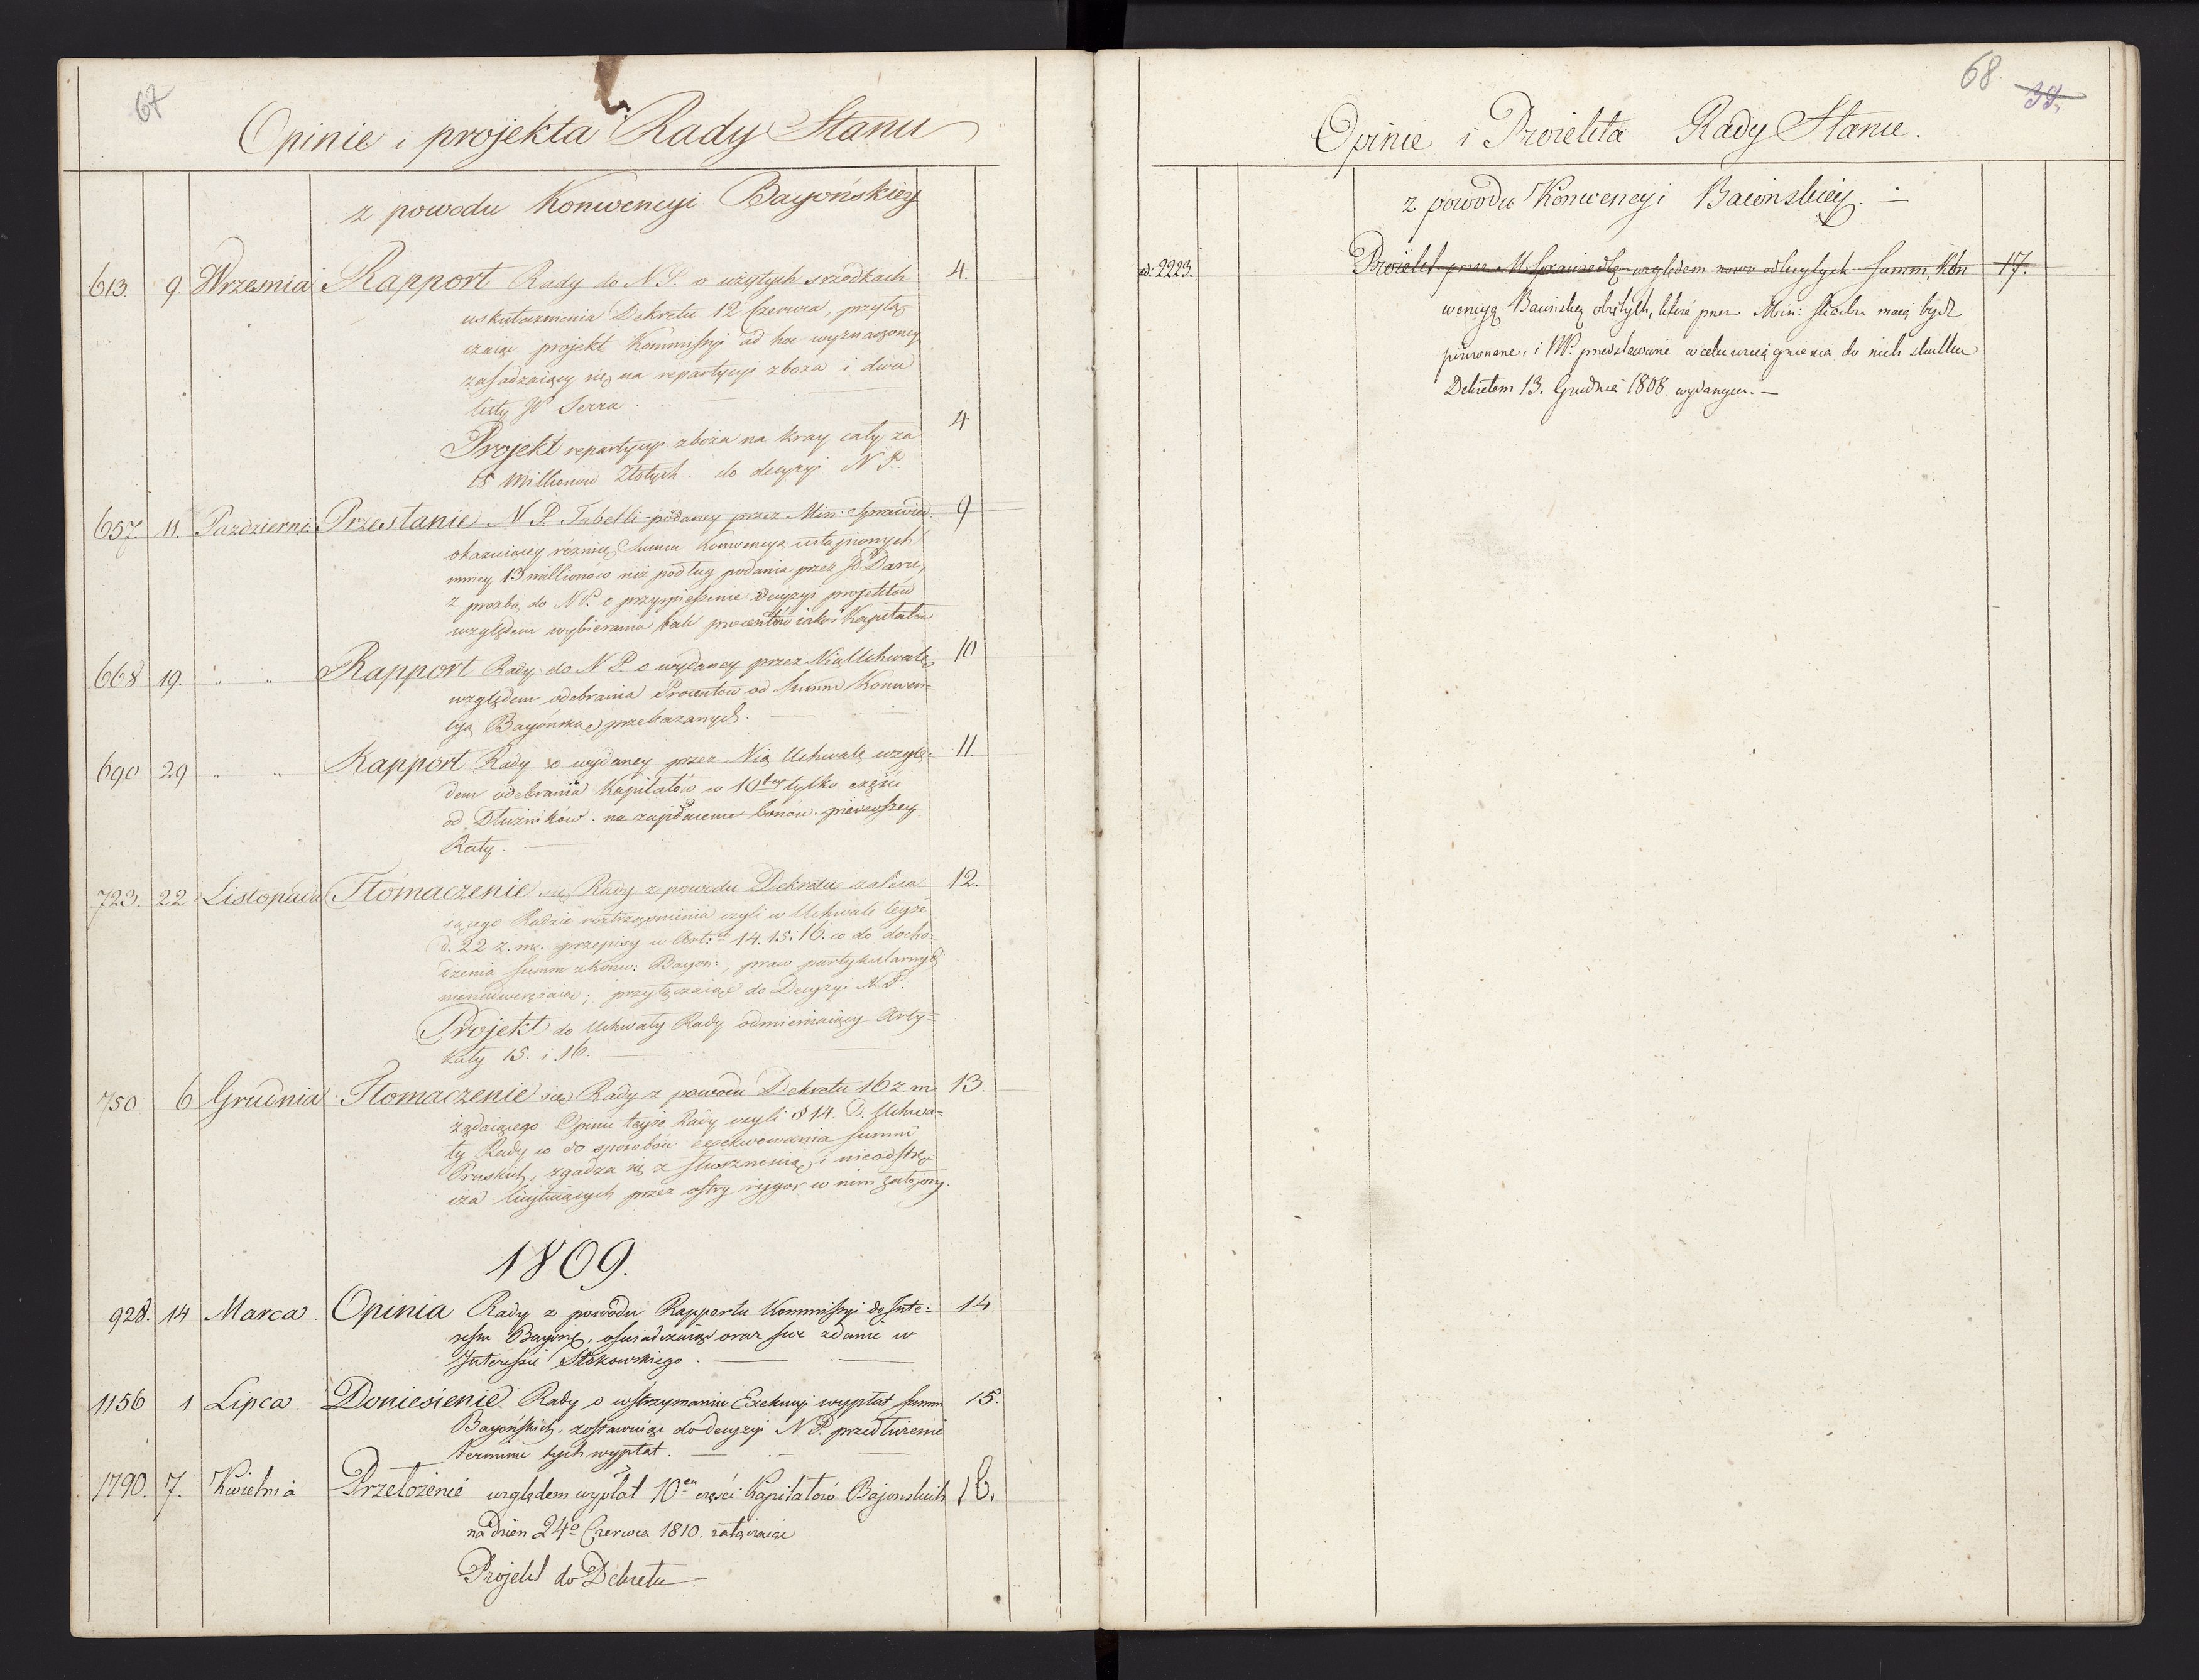 67
Opinie i projekta Rady Stanu
z powodu Konwencyi Bayońskiey
613. 9. Wrzesnia Rapport Rady do N. P. o użytych srzodkach 4.
uskutecznienia Dekretu 12 Czerwca, przyłą
czaiąc projekt Kommissyi ad hoc wyznaczoney
zasadzaiący się na repartycyi zboża i dwa
listy JP Serra.
Projekt repartycyi zboża na kray cały za 4
Millionow Złotych. do decyzyi N P.
657. 11. Pazdzierni Przesłanie N. P. Tabelli podaney przez Min: Sprawied. 9
okazuiącey róznicę Summ Konwencyą ustąpionych
mniey 13 millionów niż podług podania przez JP Daru,
z prozbą do N P. o przyspieszenie decyzyi projektów
względem wybierania tak procentów iako i Kapitałów
668 19. " " Rapport Rady do N. P. o wydaney przez Nią Uchwale 10
względem odebrania Procentow od Summ Konwen-
cyą Bayońską przekazanych.
690 29 " " Rapport Rady o wydaney przez Nią Uchwale wzglę- 11.
dem odebrania Kapitałów w 10tey tylko części
od Dłużników na zapłacenie bonów pierwszey
Raty.
723. 22 Listopada Tłomaczenie się Rady z powodu Dekretu zaleca- 12.
iącego Radzie roztrząśnienia czyli w Uchwale teyże
d. 22 z. m. przepisy w Art: 14. 15. i 16. co do docho-
dzenia Summ z Konw: Bayon:, praw partykularnych
nienadwerężaią; przyłączaiąc do Decyzyi N. P.
Projekt do Uchwały Rady odmieniaiący Arty-
kuły 15. i 16.
750 6 Grudnia Tłomaczenie się Rady z powodu Dekretu 16 z. m. 13.
żądaiącego Opinii teyże Rady czyli § 14. D. Uchwa-
ły Rady co do sposobów exekwowania Summ
Pruskich, zgadza się z słusznością i nieodstrę-
cza licytuiących przez ostry rygor w nim
1809.
928. 14 Marca. Opinia Rady z powodu Rapportu Kommissyi do Inte- 14
ressu oswiadczaiąc oraz swe zdanie w
Interessie Stokowskiego.
1156 1 Lipca. Doniesienie Rady o wstrzymaniu Exekucyi wypłat Summ 15.
Bayońskich, zostawuiąc do decyzyi N P. przedłużenie
terminu tych wypłat.
1790. 7. Kwietnia Przełożenie względem wypłat 10ey części Kapitałów Bajonskich 16.
na dzien 24o Czerwca 1810. załączaiąc
Projekt do Dekretu
68
39.
Opinie i Proiekta Rady Stanu.
z powodu Konwencyi Baionskiey.
ad. 2223. Proiekt przez M. Sprawiedlę względem nowo odkrytych Summ, Kon 17.
wencyą Baiońską obiętych, które przez Min: Skarbu maią bydź
porównane, i NP. przedstawione w celu wciągnienia do nich skutku
Dekretem 13. Grudnia 1808. wydanym.